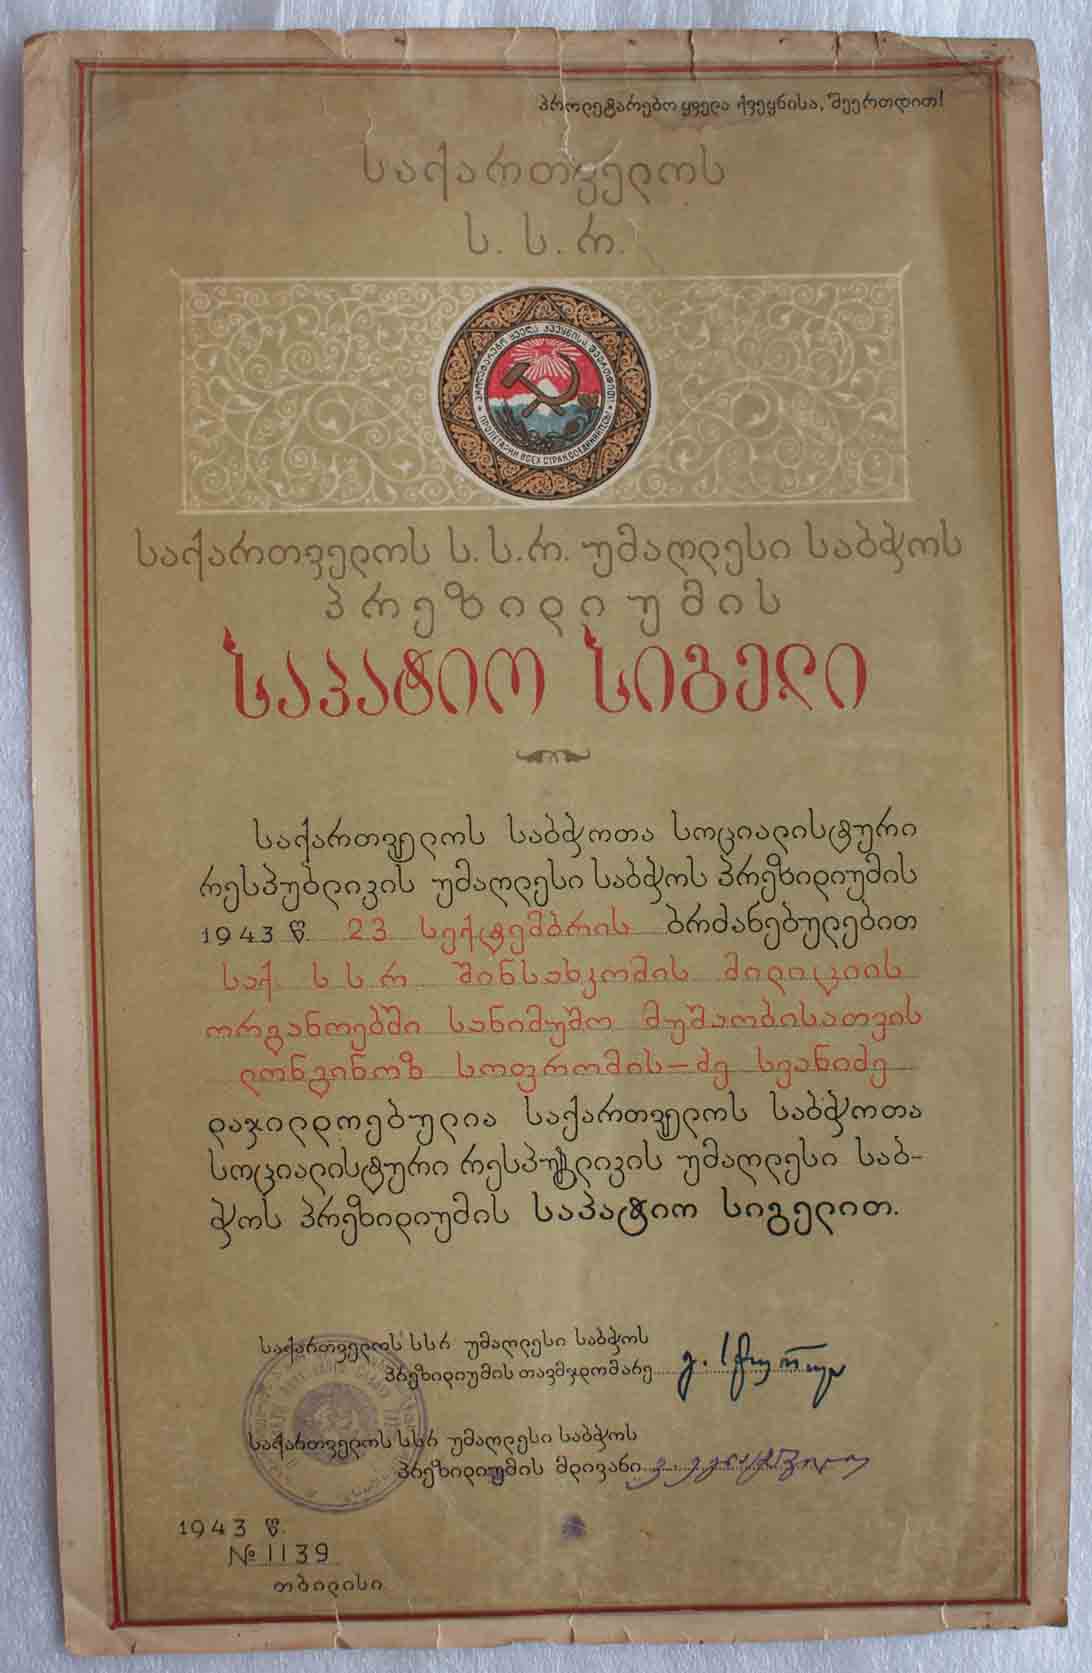 პროლეტარებო ყველა ქვეყნისა, შეერთდით!
საქართველოს
ს. ს. რ.
პროლეტარებო ყველა ქვეყნისა შეერთდით!
ПРОЛЕТАРИИ ВСЕХ СТРАН СОЕДИНЯЙТЕСЬ!
საქართველოს ს. ს. რ. უმაღლესი საბჭოს
პრეზიდიუმის
საპატიო სიგელი
საქართველოს საბჭოთა სოციალისტური
რესპუბლიკის უმაღლესი საბჭოს პრეზიდიუმის
1943 წ. 23 სექტემბრის ბრძანებულებით
საქ. ს ს რ შინსახკომის მილიციის
ორგანოებში სანიმუშო მუშაობისათვის
ლონგინოზ სოფრომის-ძე სვანიძე
დაჯილდოებულია საქართველოს საბჭოთა
სოციალისტური რესპუბლიკის უმაღლესი საბ-
ჭოს პრეზიდიუმის საპატიო სიგელით.
საქართველოს სსრ უმაღლესი საბჭოს
პრეზიდიუმის თავმჯდომარე
საქართველოს სსრ უმაღლესი საბჭოს
პრეზიდიუმის მდივანი
1943 წ.
№ 1139
თბილისი